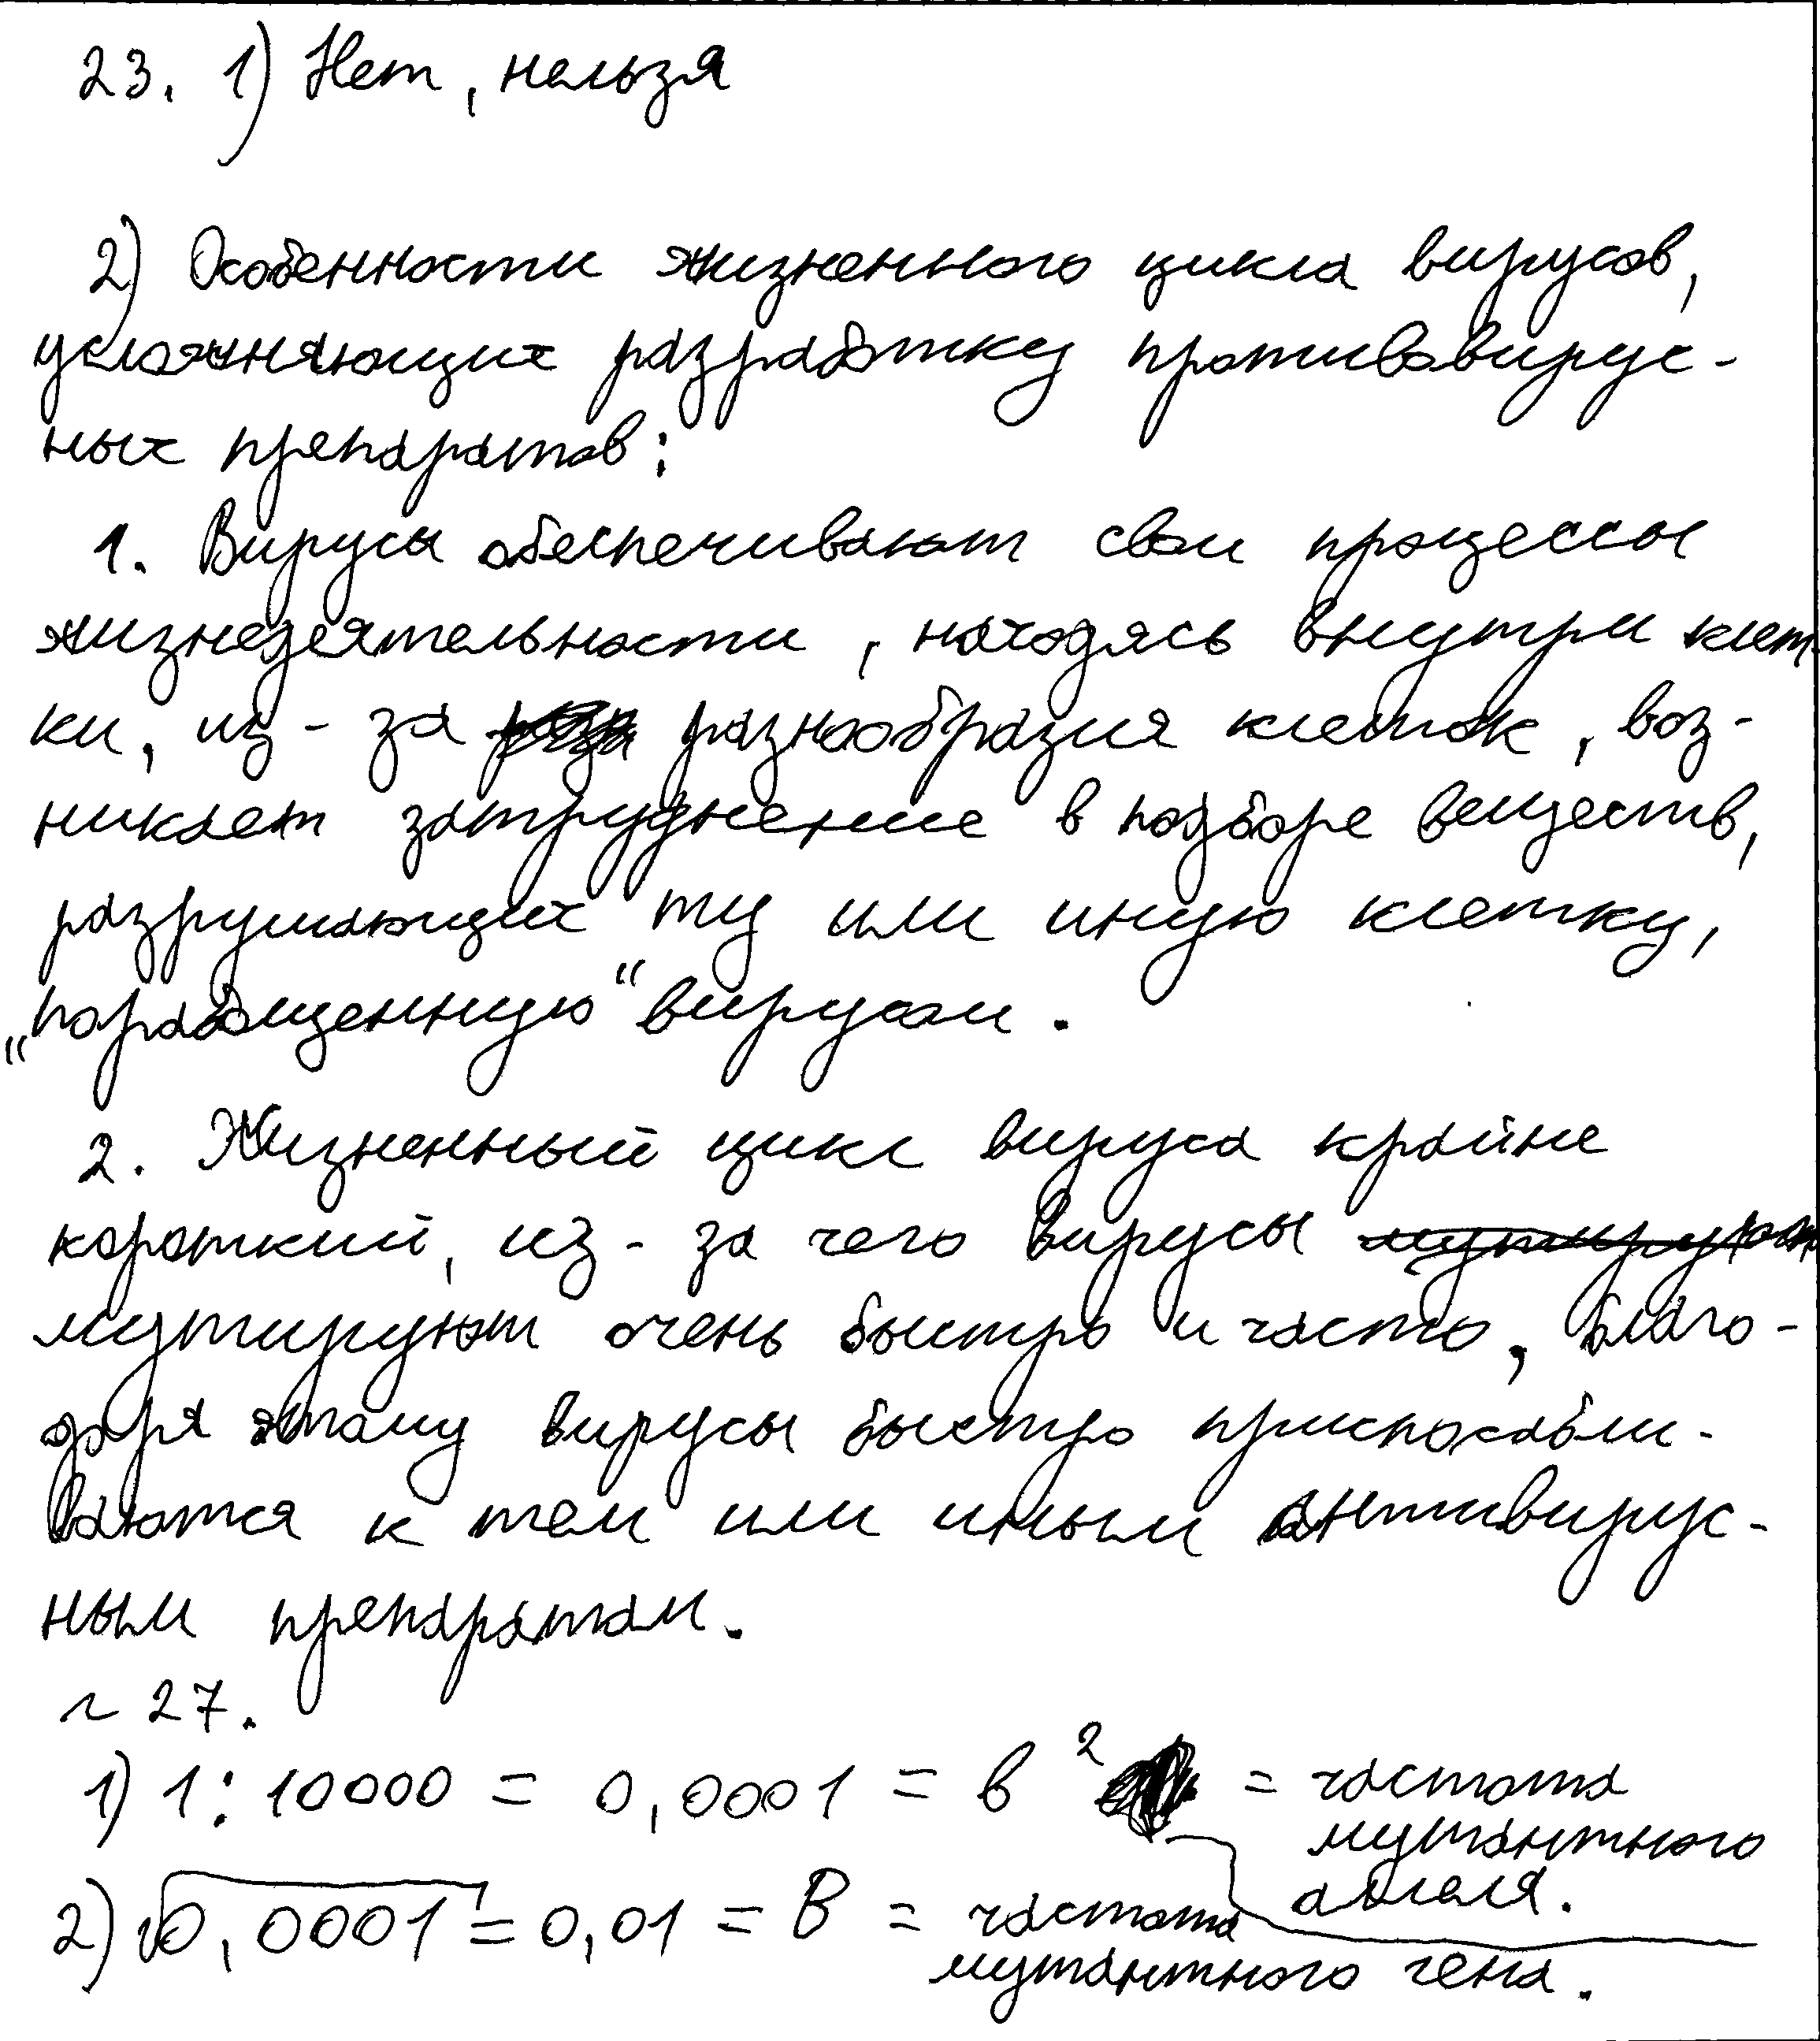 23. 1) Нет, нельзя
2) Особенности жизненного цикла вирусов,
усложняющих разработку противовирус-
ных препаратов:
1. Вирусы обеспечивают свои процессы
жизнедеятельности, находясь внутри клет-
ки, из-за разнообразия клеток, воз-
никает затруднение в подборе веществ,
разрушающих ту или иную клетку,
„порабощенную“ вирусом.
2. Жизненный цикл вируса крайне
короткий, из-за чего вирусы мутируют
мутируют очень быстро и часто, благо-
даря этому вирусы быстро приспосабли-
ваются к тем или иным антивирус-
ным препаратам.
~ 27.
1) 1 : 10000 = 0,0001 = в² = частота
мутантного
аллеля.
2) √0,0001 = 0,01 = В = частота
мутантного гена.